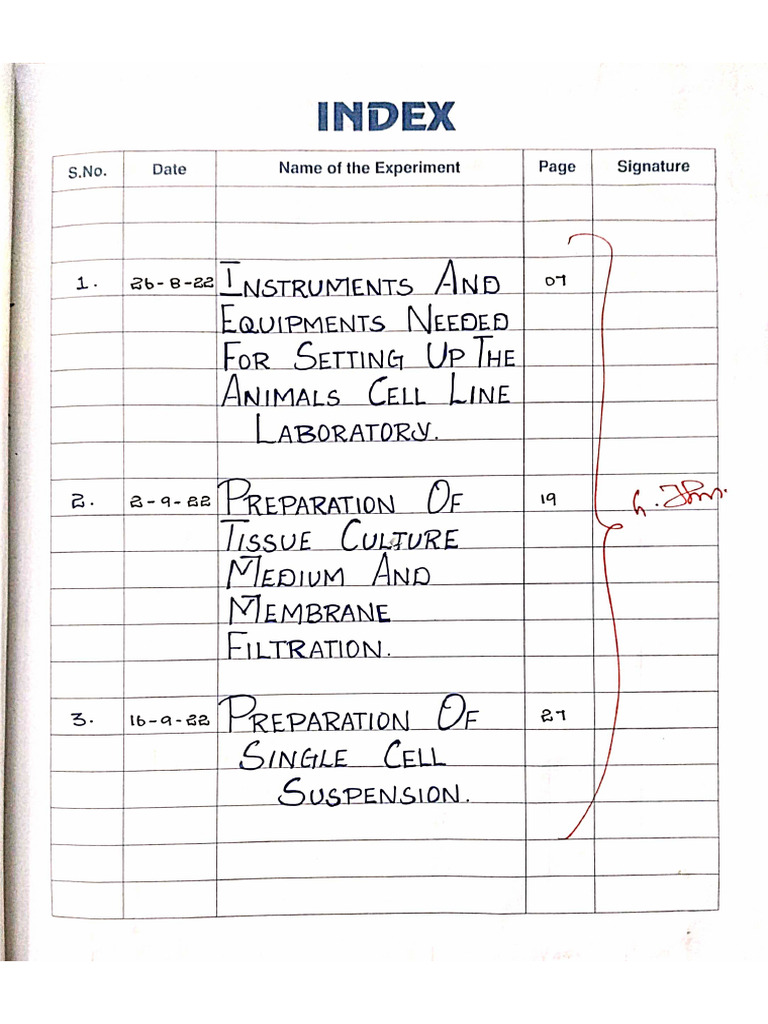 INDEX
S.No. Date Name of the Experiment Page Signature
1. 26-8-22 INSTRUMENTS AND 07
EQUIPMENTS NEEDED
FOR SETTING UP THE
ANIMALS CELL LINE
LABORATORY.
2. 2-9-22 PREPARATION OF 19
TISSUE CULTURE
MEDIUM AND
MEMBRANE
FILTRATION.
3. 16-9-22 PREPARATION OF 27
SINGLE CELL
SUSPENSION.